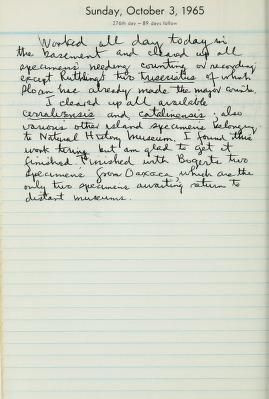 Sunday, October 3, 1965
276th day — 89 days follow
Worked all day today in
the basement and cleared up all
specimens needing counting or recording
except Ruthlings two triseriatus of which
Sloan has already made the major counts.
I cleared up all available
cerralvensis and catalinensis, also
various other island specimens belonging
to Natural History Museum. I found this
work tiring but am glad to get it
finished. Finished with Bogerts two
specimens from Oaxaca, which are the
only two specimens awaiting return to
distant museums.